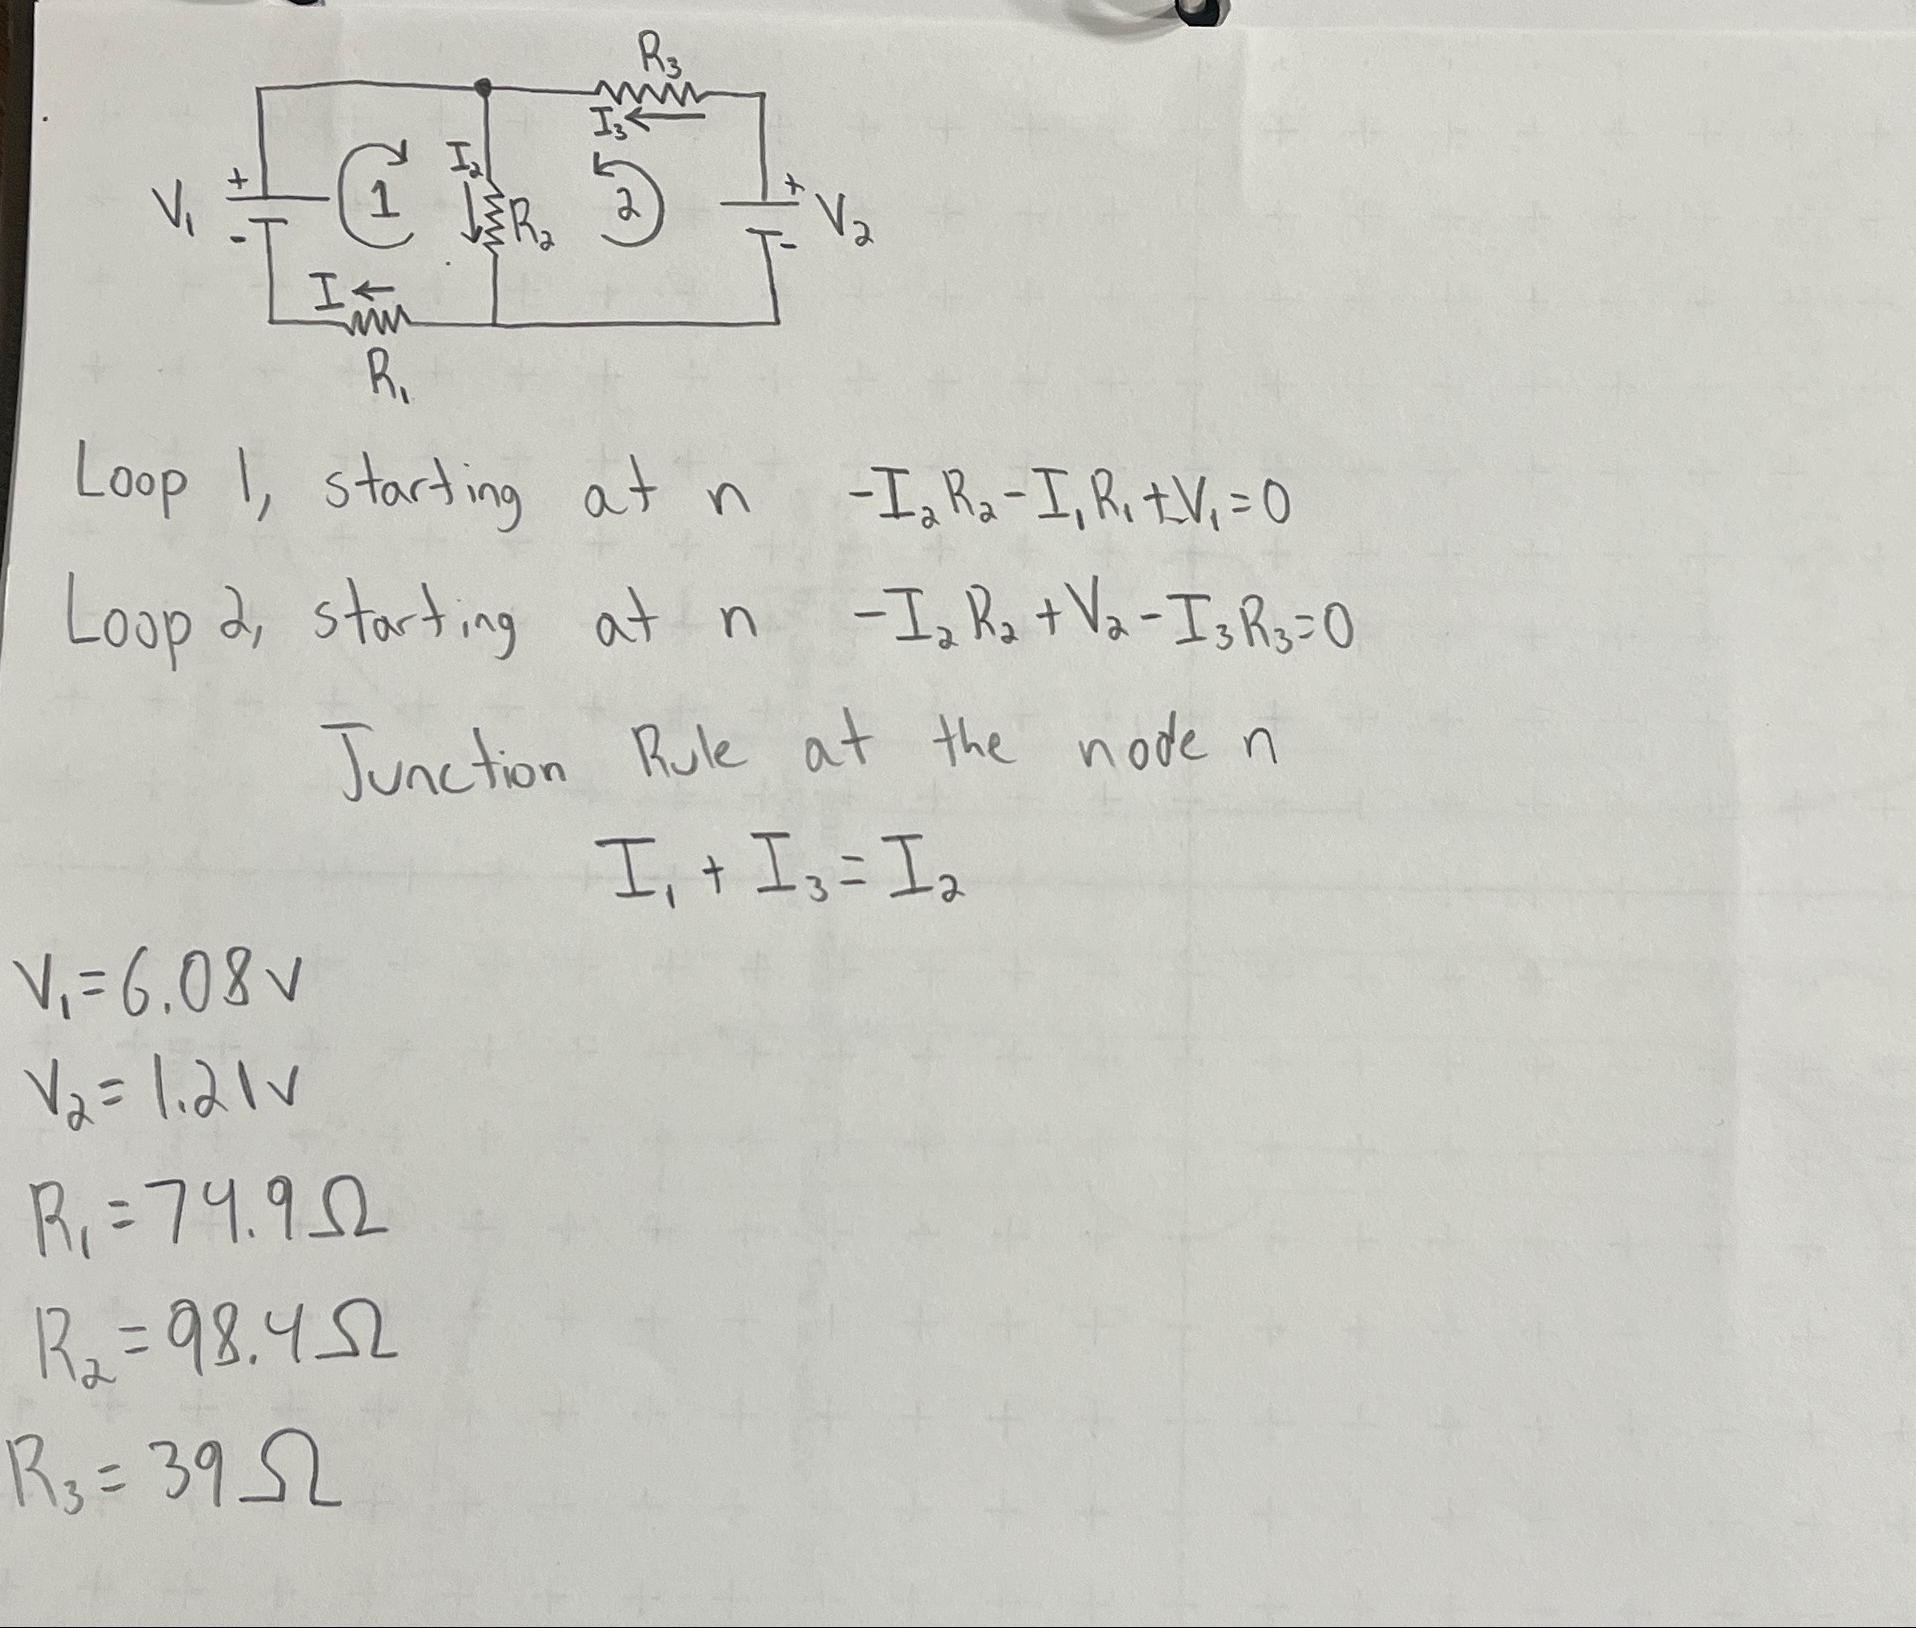 R₃
I₃ ←
+ I₂ +
V₁ 1 ↓ R₂ 2 V₂
- -
I ←
R₁
Loop 1, starting at n -I₂R₂-I₁R₁+V₁=0
Loop 2, starting at n -I₂R₂+V₂-I₃R₃=0
Junction Rule at the node n
I₁+I₃=I₂
V₁=6.08v
V₂=1.21v
R₁=74.9Ω
R₂=98.4Ω
R₃=39Ω